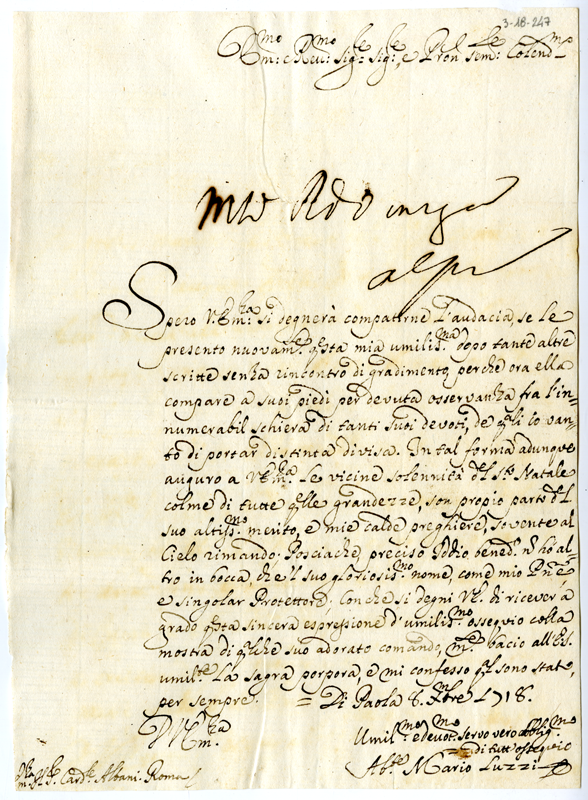 3-18-247
Em:mo e Reu:mo Sig:re Sig:re, e Pron Sem:e Colend:mo
Spero V.Em:za si degnerà compatirne l'audacia, se le
presento nuovam:te q:sta mia umilis:ma dopo tante altre
scritte senza rincontro di gradimento, perche ora ella
compare a suoi piedi per devuta osservanza fra l'in=
numerabil schiera di tanti suoi devoti, de q:li io van=
to di portar distinta divisa. In tal forma adunque
auguro a V.Em: le vicine solennità d'l s:to Natale
colme di tutte q:lle grandezze, son propio parto d'l
suo altiss:mo merito, e mie calde preghiere, sovente al
Cielo rimando. Posciache, preciso Iddio bened: n' hò al=
tro in bocca, che 'l suo gloriosis:mo nome, come mio Pn'e
e singolar Protettore; Con che si degni V.E. di ricever à
grado q:sta sincera espressione d'umilis:mo ossequio colla
mostra di q:lche suo adorato comando, m:e bacio all'E.S.
umil:te la sagra porpora, e mi confesso q:l sono stato,
per sempre. = Di Paola 8. Xbre 1718.
D V.Em:za
Umil:mo e devot:mo servo vero obblig:mo
di tutt'ossequio
Ab:te Mario Luzzi
Em: S:r Card:le Albani. Roma